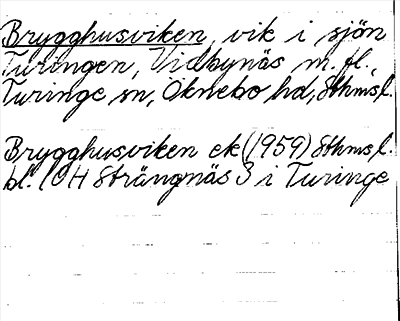 Brygghusviken, vik i sjön
Turingen, Vidbynäs m. fl.,
Turinge sn, Öknebo hd, Sthms l.
Brygghusviken ek (1959) Sthms l.
bl. 10H Strängnäs 3 i Turinge